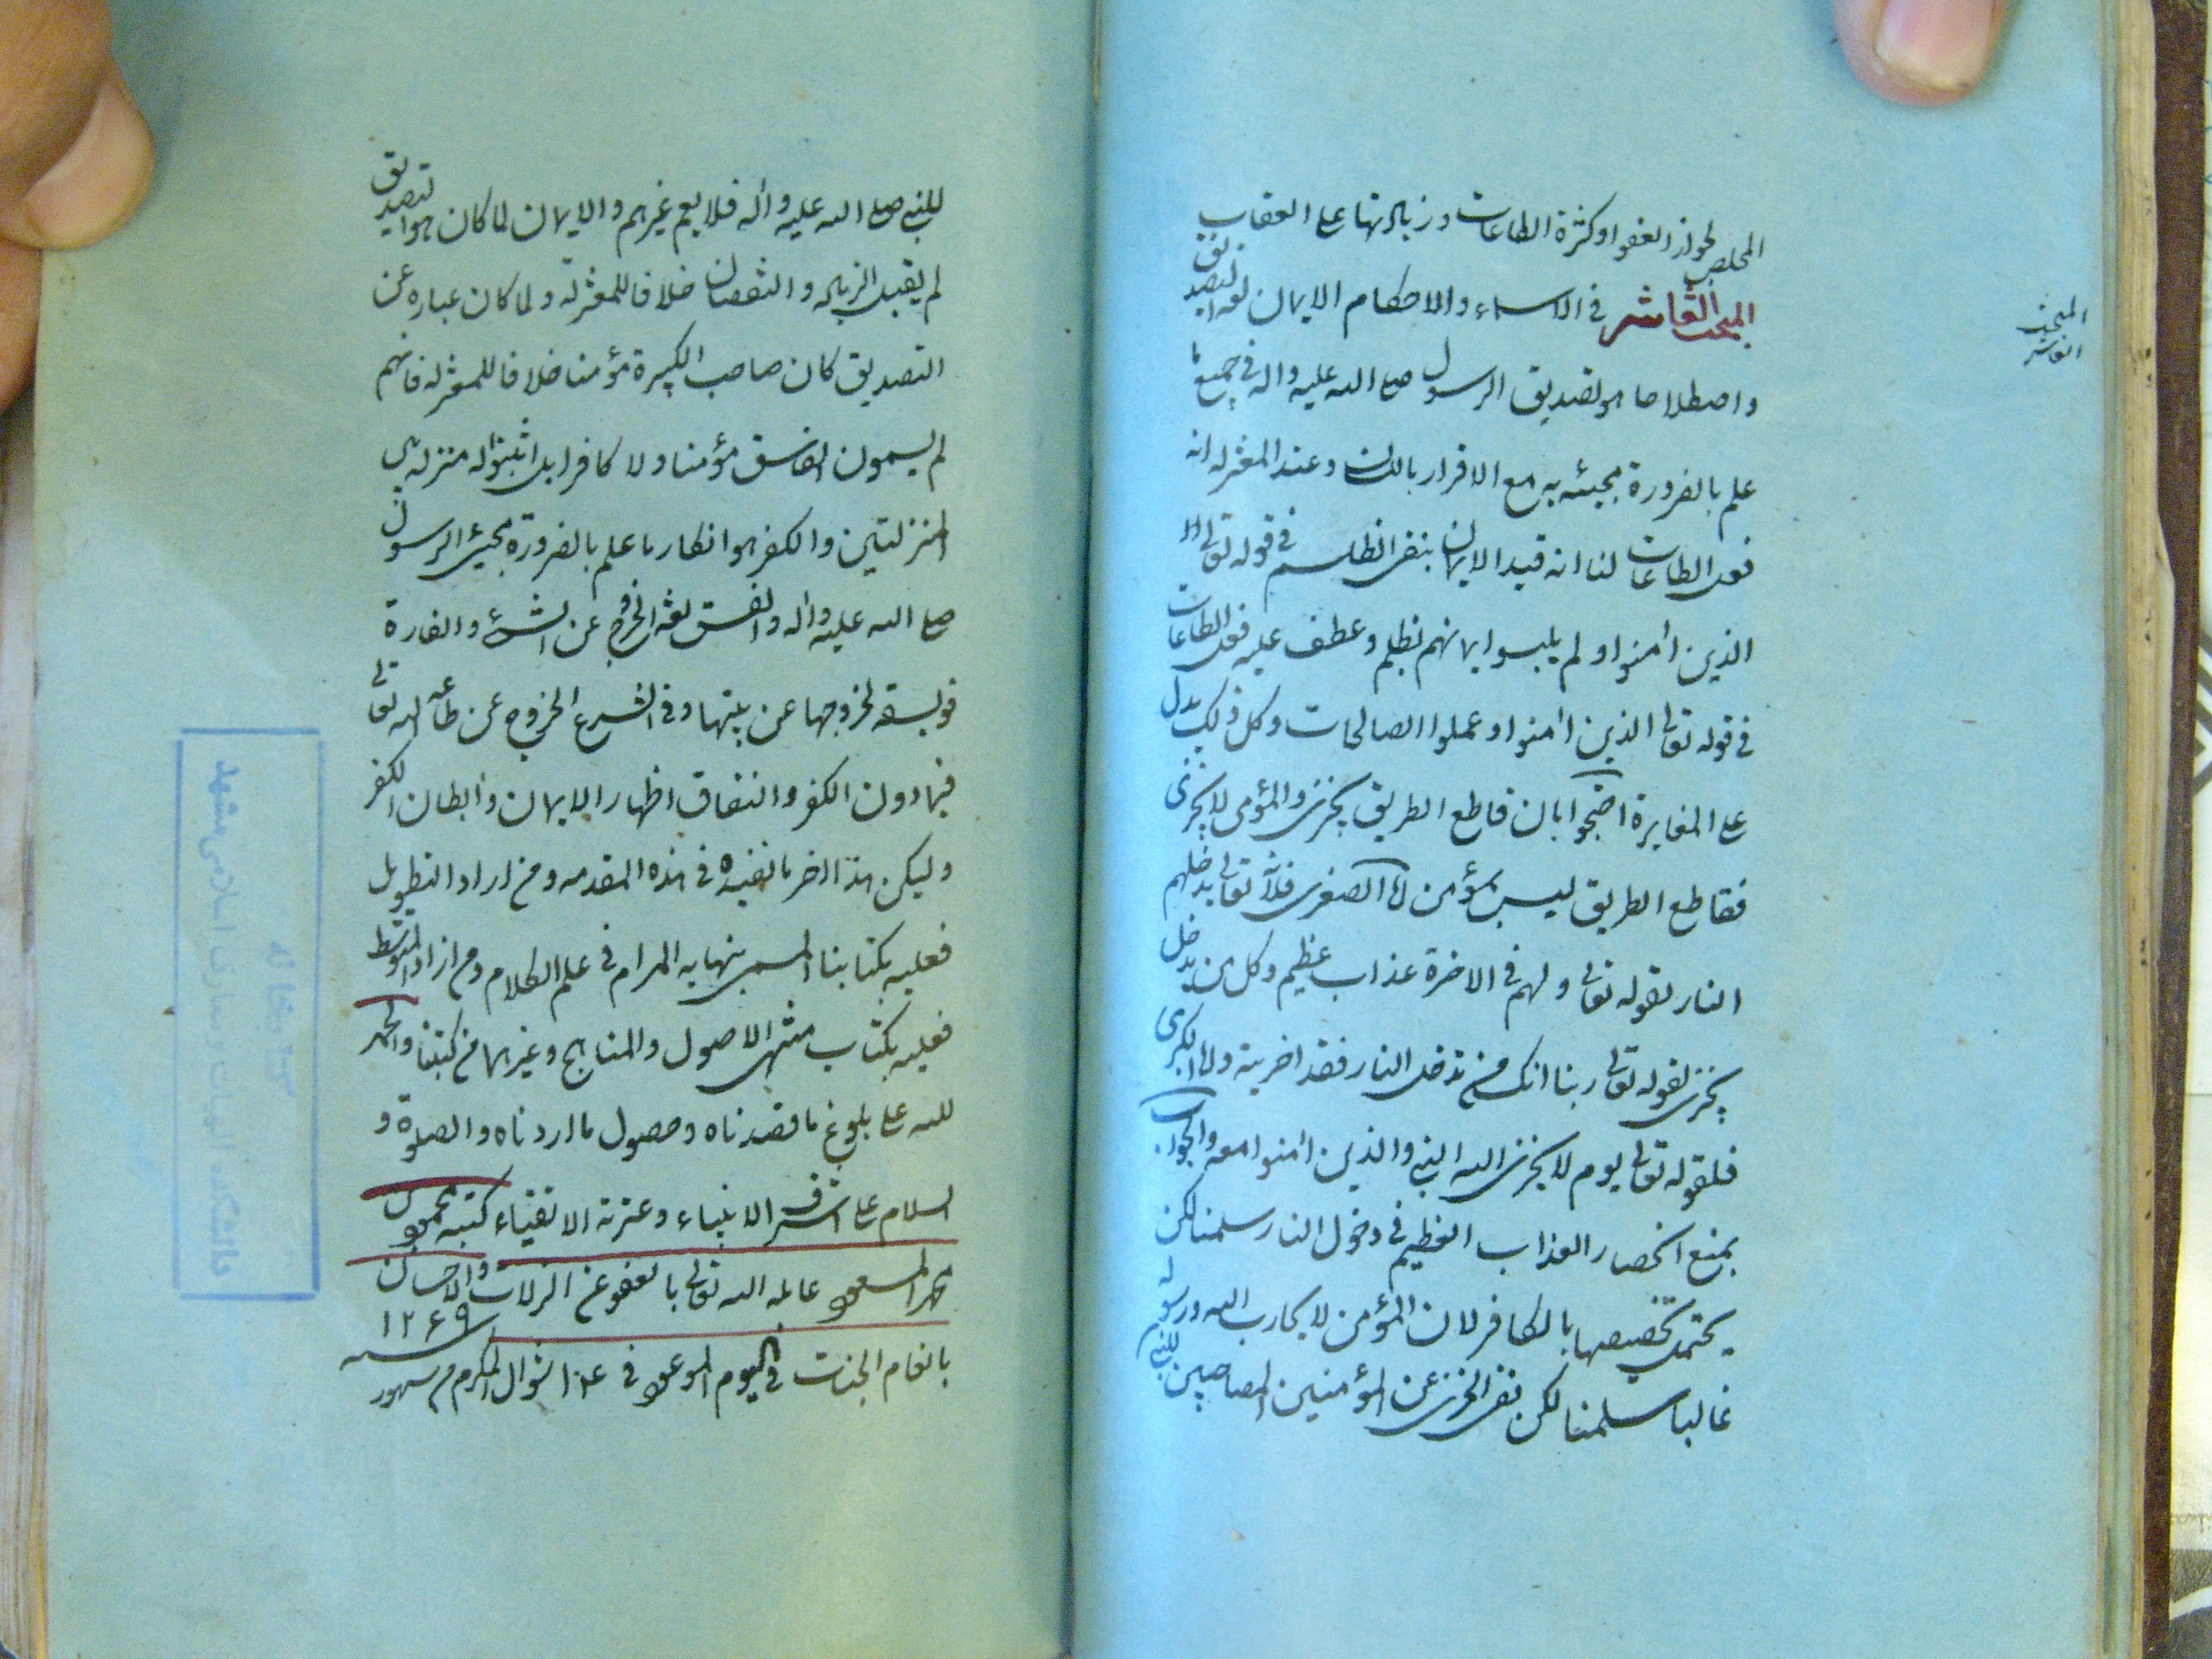 المخلص لجواز العفو او كثرة الطاعات و زيادتها على العقاب
المبحث العاشر في الاسماء والاحكام الايمان لغة التصديق
المبحث العاشر
واصطلاحا هو تصديق الرسول صلى الله عليه واله في جميع ما
علم بالضرورة مجيئه به مع الاقرار باللسان وعند المعتزلة انه
فعل الطاعات لنا انه قيد الايمان بنفى الظلم في قوله تعالى
الذين امنوا و لم يلبسوا ايمانهم بظلم وعطف عليه فعل الطاعات
في قوله تعالى الذين امنوا وعملوا الصالحات وكل ذلك يدل
على المغايرة احتجوا بان قاطع الطريق يخزى والمؤمن لا يخزى
فقاطع الطريق ليس بمؤمن اما الصغرى فلانه تعالى يدخلهم
النار لقوله تعالى ولهم في الاخرة عذاب عظيم وكل من يدخل
يخزى لقوله تعالى ربنا انك من تدخل النار فقد اخزيته واما الكبرى
فلقوله تعالى يوم لا يخزى الله النبي والذين امنوا معه والجواب
بمنع انحصار العذاب العظيم في دخول النار سلمنا لكن
يحتمل تخصيصها بالكافر لان المؤمن لا يحارب الله ورسوله
غالبا سلمنا لكن نفى الخزى عن المؤمنين المصاحبين للنبي
للنبي صلى الله عليه واله فلا يعم غيرهم والايمان لما كان هو التصديق
لم يقبل الزيادة والنقصان خلافا للمعتزلة ولما كان عبارة عن
التصديق كان صاحب الكبيرة مؤمنا خلافا للمعتزلة فانهم
لم يسمون الفاسق مؤمنا ولا كافرا بل اثبتوا له منزلة بين
المنزلتين والكفر هو انكار ما علم بالضرورة مجيئ الرسول
صلى الله عليه واله والفسق لغة الخروج عن الشئ والفارة
فويسقة لخروجها عن بيتها وفي الشرع الخروج عن طاعة الله تعالى
فيما دون الكفر والنفاق اظهار الايمان وابطان الكفر
وليكن هذا اخر ما نفيده في هذه المقدمه ومن اراد التطويل
فعليه بكتابنا المسمى بنهاية المرام في علم الكلام ومن اراد المتوسط
فعليه بكتاب منتهى الاصول والمناهج وغيرهما من كتبنا والحمد
لله على بلوغ ما قصدناه وحصول ما اردناه والصلوة و
السلام على اشرف الانبياء وعترته الاتقياء كتبه محمود بن
محمد المسعود عامله الله تعالى بالعفو عن الزلات والاحسان
بانعام الجنات في اليوم الموعود في شوال المكرم من شهور
سنه ۱۲۶۹
كتابخانه
دانشكده الهيات و معارف اسلامى مشهد